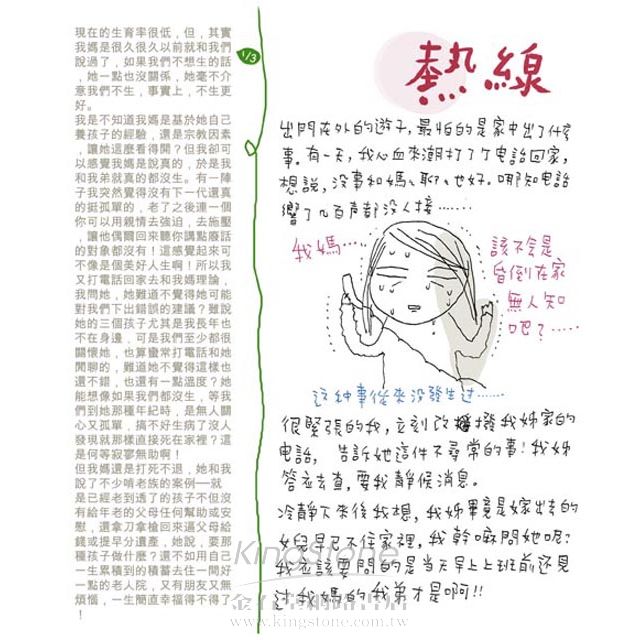 現在的生育率很低，但，其實
我媽是很久很久以前就和我們
說過了，如果我們不想生的話
，她一點也沒關係，她毫不介
意我們不生，事實上，不生更
好。
我是不知道我媽是基於她自己
養孩子的經驗，還是宗教因素
，讓她這麼看得開？但我卻可
以感覺我媽是說真的，於是我
和我弟就真的都沒生。有一陣
子我突然覺得沒有下一代還真
的挺孤單的，老了之後連一個
你可以用親情去強迫，去施壓
，讓他偶爾回來聽你講點廢話
的對象都沒有！這感覺起來可
不像是個美好人生啊！所以我
又打電話回家去和我媽理論，
我問她，她難道不覺得她可能
對我們下出錯誤的建議？雖說
她的三個孩子尤其是我長年也
不在身邊，可是我們至少都很
關懷她，也算蠻常打電話和她
閒聊的，難道她不覺得這樣也
還不錯，也還有一點溫度？她
能想像如果我們都沒生，等我
們到她那種年紀時，是無人關
心又孤單，搞不好生病了沒人
發現就那樣直接死在家裡？這
是何等寂寥無助啊！
但我媽還是打死不退，她和我
說了不少啃老族的案例──就
是已經老到透了的孩子不但沒
有給年老的父母任何幫助或安
慰，還拿刀拿槍回來逼父母給
錢或提早分遺產，她說，要那
種孩子做什麼？還不如用自己
一生累積到的積蓄去住一間好
一點的老人院，又有朋友又無
煩惱，一生簡直幸福得不得了
！
1/3
熱線
出門在外的遊子，最怕的是家中出了什麼
事。有一天，我心血來潮打了个電話回家，
想說，沒事和媽、聊、也好。哪知電話
響了几百声都没人接……
我媽……
該不会是
昏倒在家
無人知
吧？……
这种事從來没發生过……
很緊張的我，立刻改撥我姊家的
电話，告訴她這件不尋常的事！我姊
答应去查，要我靜候消息。
冷靜下來後我想，我姊畢竟是嫁出去的
女兒是已不住家裡，我幹嘛問她呢？
我应該要問的是当天早上上班前还見
过我媽的我弟才是啊！！
KingStone
金石堂網路書店
www.kingstone.com.tw